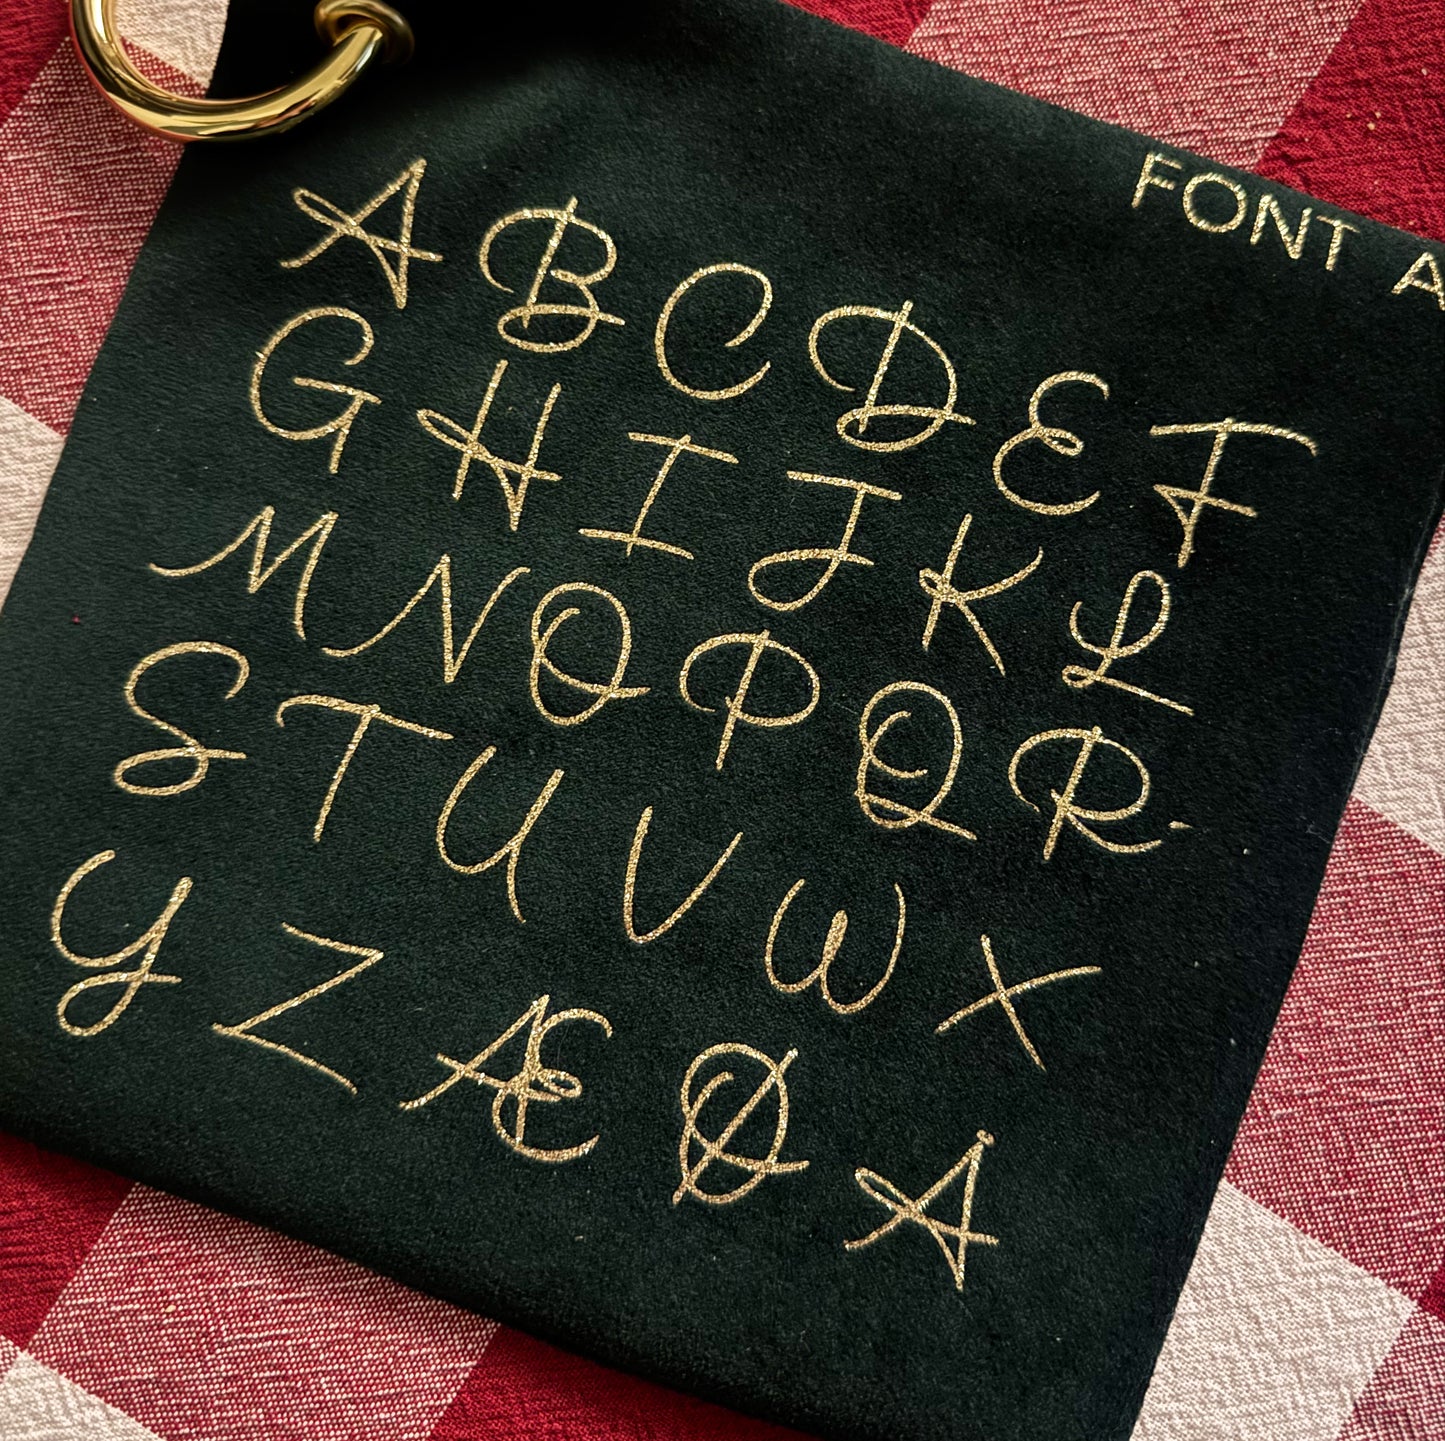 FONT A
A B C D E F
G H I J K L
M N O P Q R
S T U V W X
Y Z Æ Ø Å